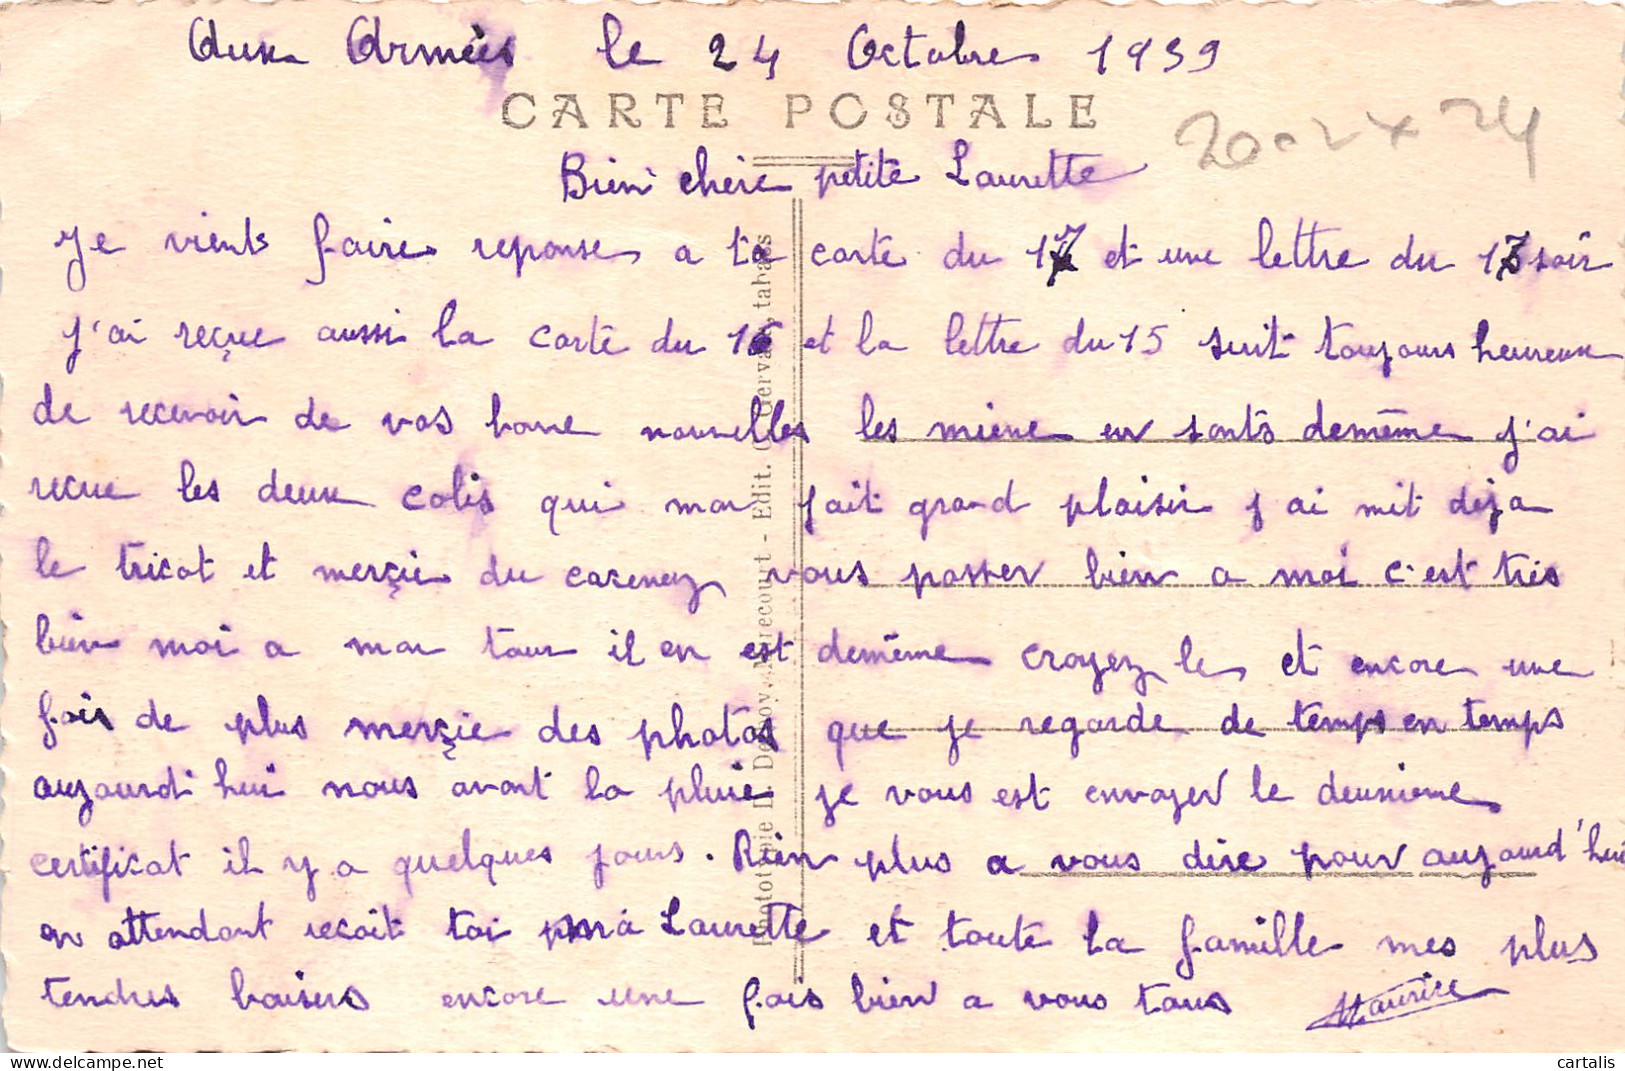 Aux Armées le 24 Octobre 1939
CARTE POSTALE
20-2x24
Bien chère petite Laurette
Je vients faire reponse a ta carte du 17 et une lettre du 17 soir
j'ai reçue aussi la carte du 16 et la lettre du 15 suit toujours heureux
de recevoir de vos bone nouvelles les miene en sonts demême j'ai
recue les deux colis qui mon fait grand plaisir j'ai mit deja
le tricot et merçie du cacenez vous passer bien a moi c'est tres
bien moi a mon tour il en est demême croyez le et encore une
fois de plus merçie des photos que je regarde de temps en temps
aujourd'hui nous avont la pluie je vous est envoyer le deuxieme
certificat il y a quelques jours. Rien plus a vous dire pour aujourd'hui
en attendant recoit toi ma Laurette et toute la famille mes plus
tendres baisers encore une fois bien a vous tous Maurice
Phototypie D. Delboy, Mirecourt - Edit. G. Gervais, tabacs
cartalis